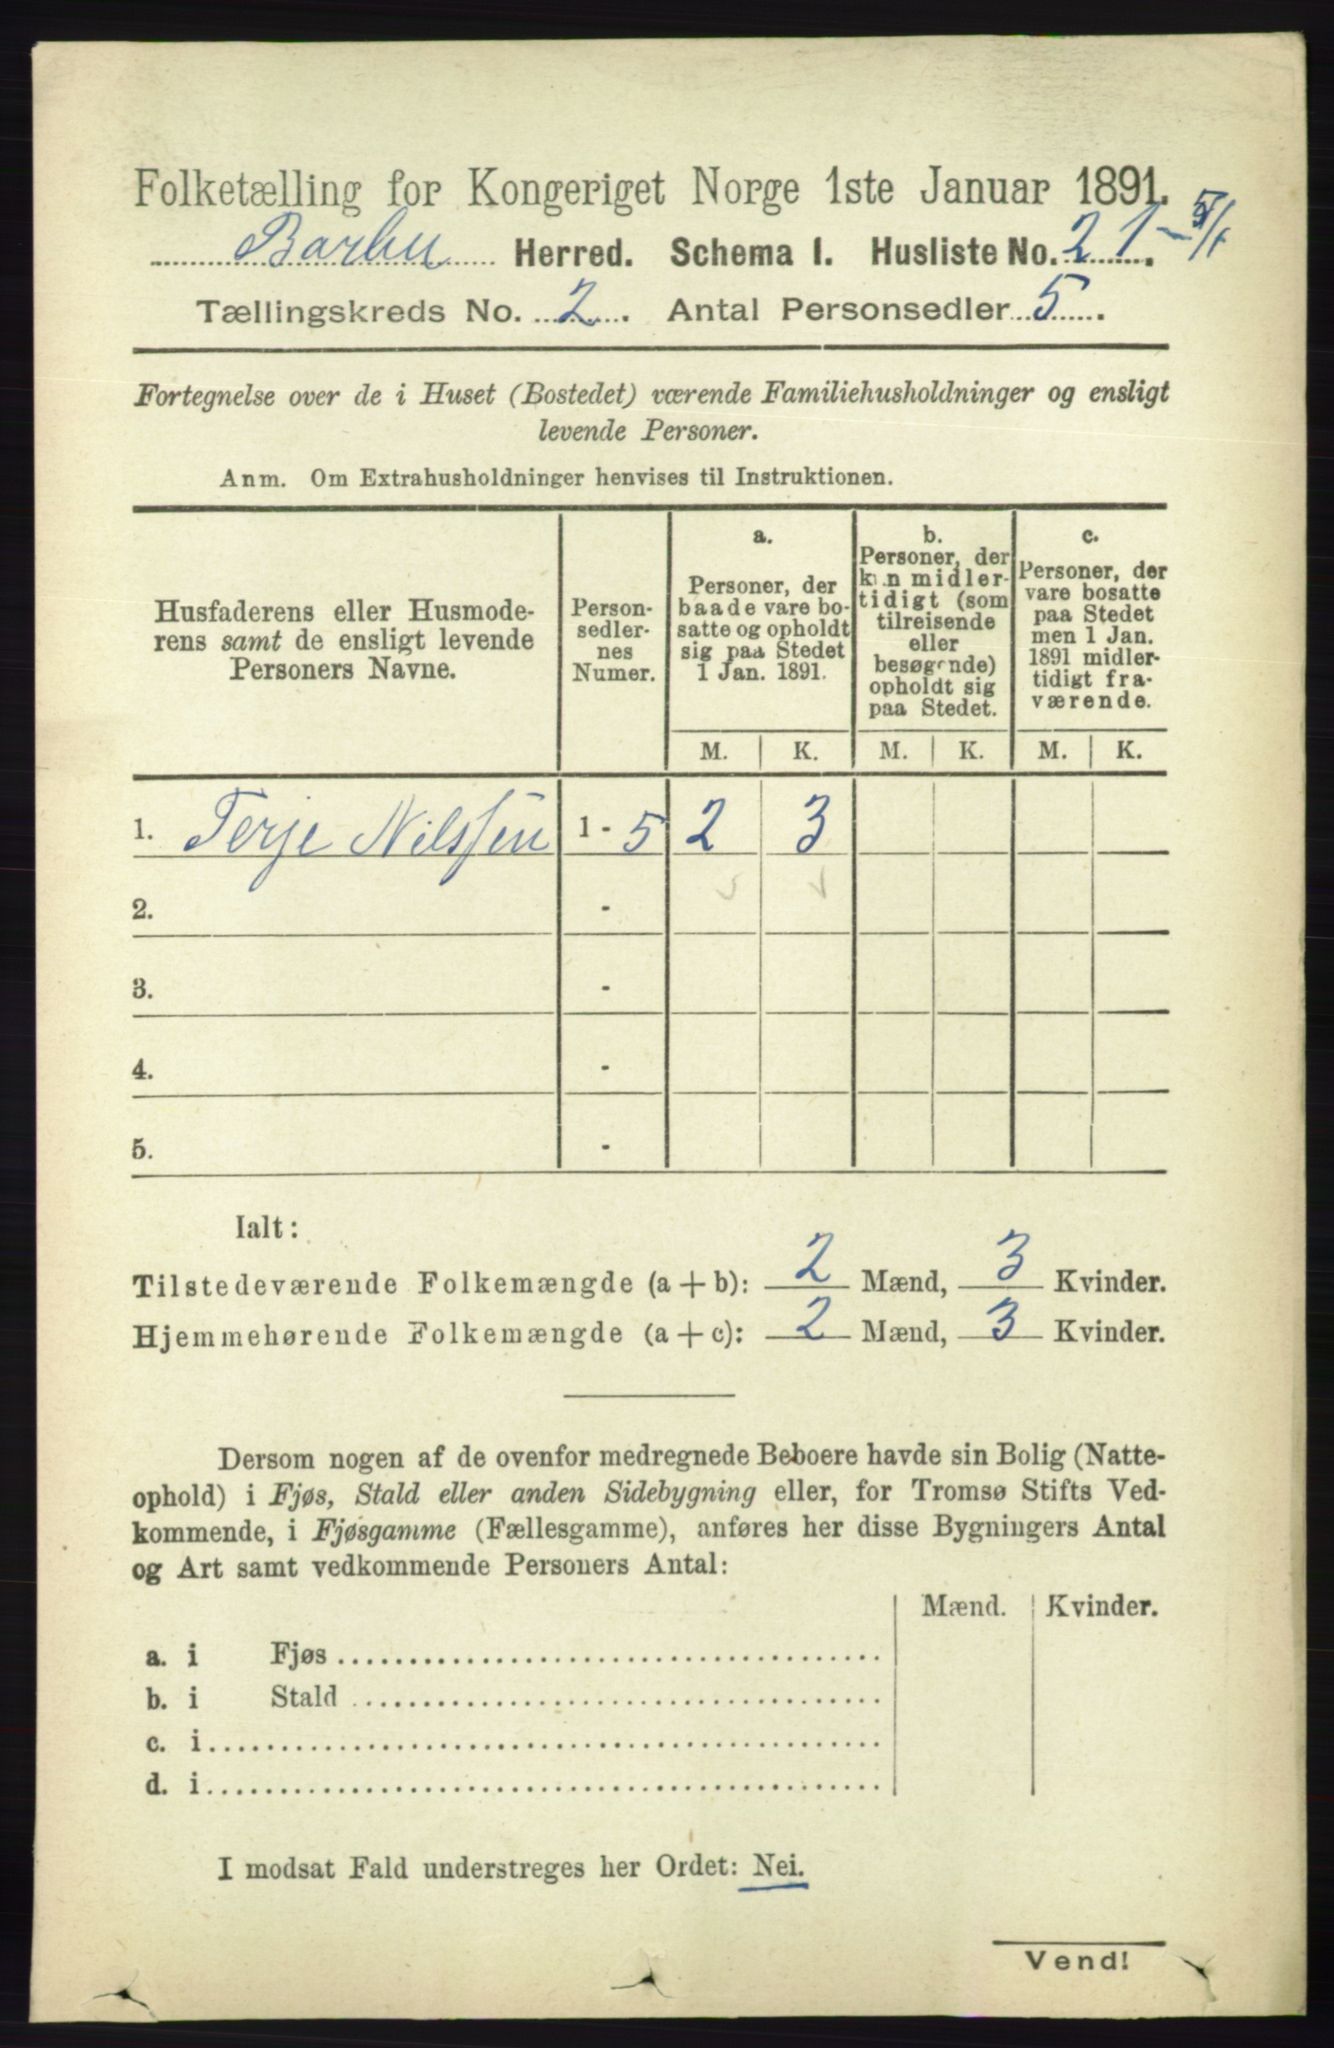 Folketælling for Kongeriget Norge 1ste Januar 1891.
Barbu Herred. Schema I. Husliste No. 21 - 5/1
Tællingskreds No. 2. Antal Personsedler 5.
Fortegnelse over de i Huset (Bostedet) værende Familiehusholdninger og ensligt
levende Personer.
Anm. Om Extrahusholdninger henvises til Instruktionen.
Husfaderens eller Husmode-
rens samt de ensligt levende
Personers Navne.
Person-
sedler-
nes
Numer.
a.
Personer, der
baade vare bo-
satte og opholdt
sig paa Stedet
1 Jan. 1891.
b.
Personer, der
kun midler-
tidigt (som
tilreisende
eller
besøgende)
opholdt sig
paa Stedet.
c.
Personer, der
vare bosatte
paa Stedet
men 1 Jan.
1891 midler-
tidigt fra-
værende.
M. K. M. K. M. K.
1. Terje Nilssen 1 - 5 2 3
2. -
3. -
4. -
5. -
Ialt:
Tilstedeværende Folkemængde (a + b): 2 Mænd, 3 Kvinder.
Hjemmehørende Folkemængde (a + c): 2 Mænd, 3 Kvinder.
Dersom nogen af de ovenfor medregnede Beboere havde sin Bolig (Natte-
ophold) i Fjøs, Stald eller anden Sidebygning eller, for Tromsø Stifts Ved-
kommende, i Fjøsgamme (Fællesgamme), anføres her disse Bygningers Antal
og Art samt vedkommende Personers Antal:
Mænd. Kvinder.
a. i Fjøs
b. i Stald
c. i
d. i
I modsat Fald understreges her Ordet: Nei.
Vend!